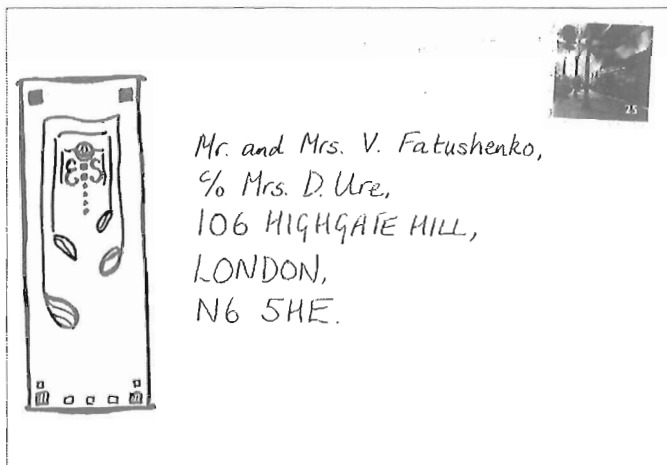 Mr. and Mrs. V. Fatushenko,
c/o Mrs. D. Ure,
106 HIGHGATE HILL,
LONDON,
N6 5HE.
25